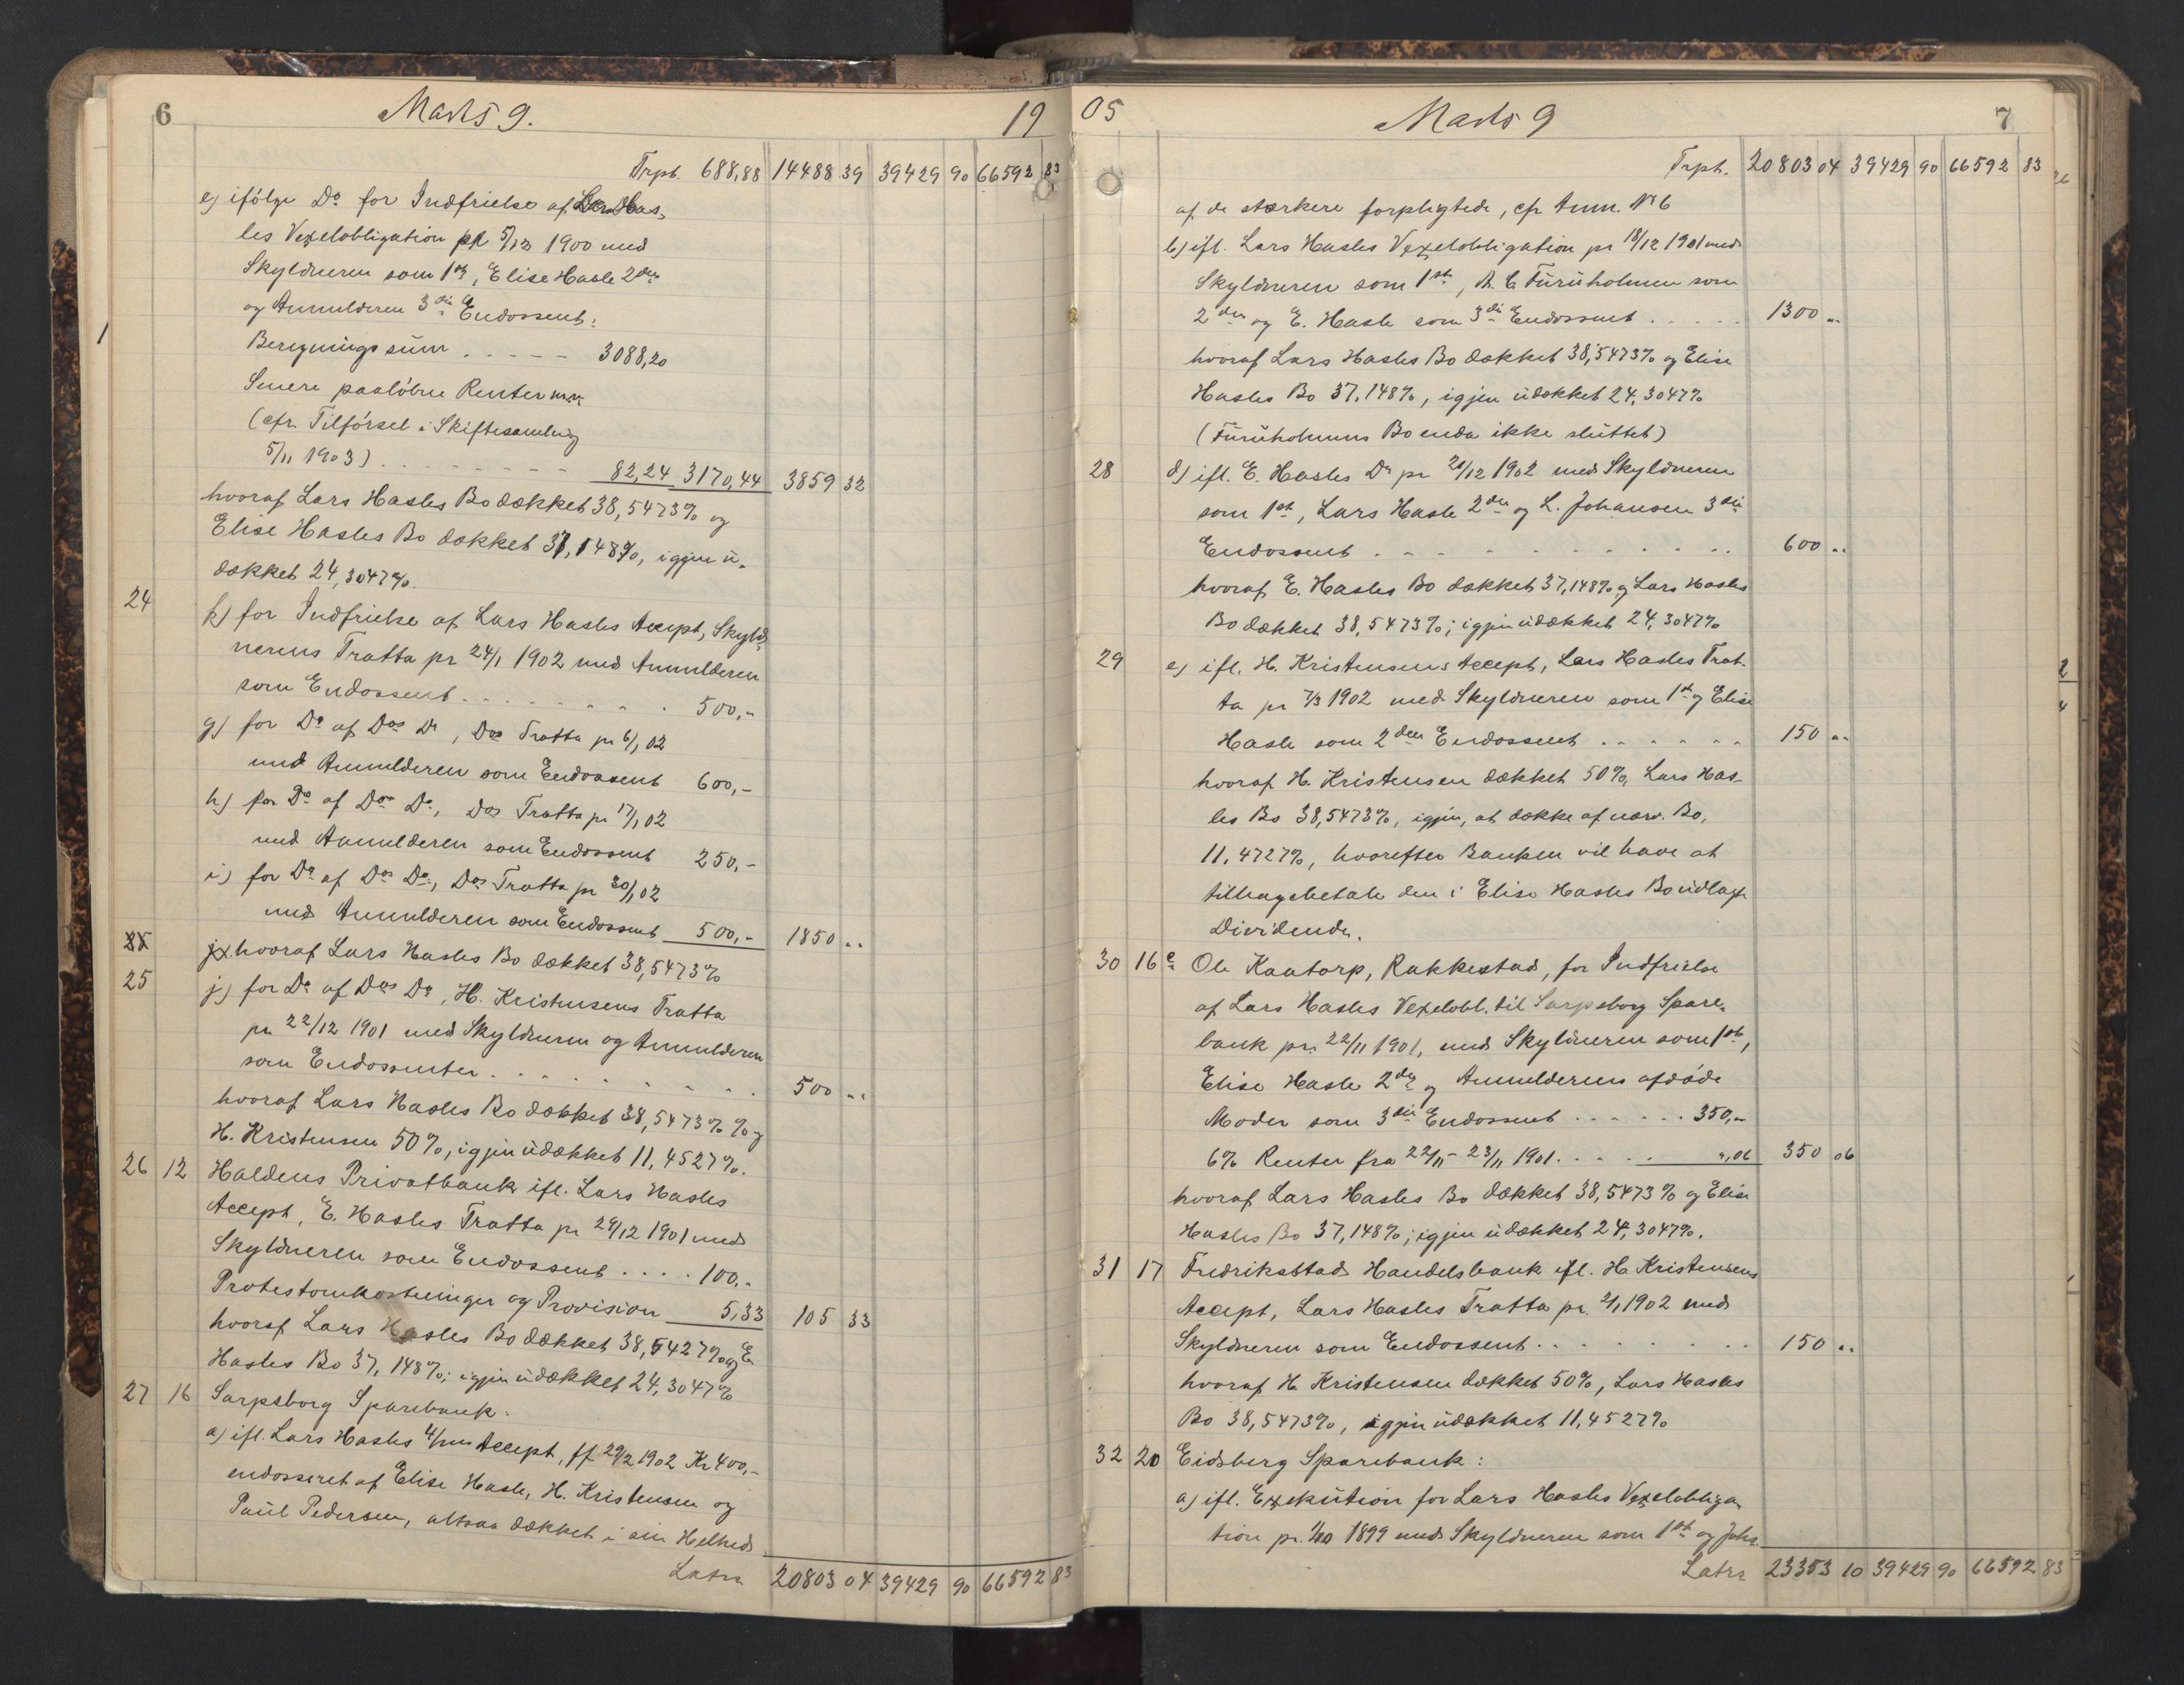 6 Marts 9. 19
Trpt. 688,88 14488 39 39429 90 66592 83
e) ifölge Do for Indfrielse af Lars Has-
les Vexelobligation pr 5/12 1900 med
Skyldneren som 1ste, Elise Hasle 2den
og Anmelderen 3die Endossent:
Beregningssum . . . . . 3088,20
Senere paaløbne Renter m.v.
(cfr. Tilförsel i Skiftesamling
5/11 1903) . . . . . . . . 82,24 3170,44 3859 32
hvoraf Lars Hasles Bo dækket 38,5473% og
Elise Hasles Bo dækket 37,148%, igjen u-
dækket 24,3047%.
24 f) for Indfrielse af Lars Hasles Accept, Skyld-
nerens Tratta pr 24/1 1902 med Anmelderen
som Endossent . . . . . . . . 500,-
g) for Do af Dos Do, Dos Tratta pr 6/1 02
med Anmelderen som Endossent 600,-
h) for Do af Dos Do, Dos Tratta pr 17/1 02
med Anmelderen som Endossent 250,-
i) for Do af Dos Do, Dos Tratta pr 30/1 02
med Anmelderen som Endossent 500,- 1850 ..
25 j) hvoraf Lars Hasles Bo dækket 38,5473%
25 j) for Do af Dos Do, H. Kristensens Tratta
pr 22/12 1901 med Skyldneren og Anmelderen
som Endossenter . . . . . . . . 500 ..
hvoraf Lars Hasles Bo dækket 38,5473% % og
H. Kristensen 50%, igjen udækket 11,4527%.
26 12 Haldens Privatbank ifl. Lars Hasles
Accept, E. Hasles Tratta pr 29/12 1901 med
Skyldneren som Endossent . . . . 100,-
Protestomkostninger og Provision 5,33 105 33
hvoraf Lars Hasles Bo dækket 38,5427% og E.
Hasles Bo 37,148%; igjen udækket 24,3047%
27 16 Sarpsborg Sparebank:
a) ifl. Lars Hasles 4/mns Accept, ff 29/2 1902 Kr 400,-
endosseret af Elise Hasle, H. Kristensen og
Paul Pedersen, altsaa dækket i sin Helhed
Latus 20803 04 39429 90 66592 83
05 Marts 9 7
Trpt. 20803 04 39429 90 66592 83
af de stærkere forpligtede, cfr Anm. No 6
b) ifl. Lars Hasles Vexelobligation pr 18/12 1901 med
Skyldneren som 1ste, A. C. Furuholmen som
2den og E. Hasle som 3die Endossent . . . . . 1300 ..
hvoraf Lars Hasles Bo dækket 38,5473% og Elise
Hasles Bo 37,148%, igjen udækket 24,3047%
(Furuholmens Bo enda ikke sluttet)
28 d) ifl. E. Hasles Do pr 20/12 1902 med Skyldneren
som 1ste, Lars Hasle 2den og L. Johansen 3die
Endossent . . . . . . . . . . . 600 ..
hvoraf E. Hasles Bo dækket 37,148% og Lars Hasles
Bo dækket 38,5473%; igjen udækket 24,3047%
29 e) ifl. H. Kristensens Accept, Lars Hasles Trat-
ta pr 7/3 1902 med Skyldneren som 1ste og Elise
Hasle som 2den Endossent . . . . . . 150 ..
hvoraf H. Kristensen dækket 50%, Lars Has-
les Bo 38,5473%, igjen, at dække af nærv. Bo,
11,4727%, hvorefter Banken vil have at
tilbagebetale den i Elise Hasles Bo udlagte
Dividende.
30 16e Ole Kaatorp, Rakkestad, for Indfrielse
af Lars Hasles Vexelobl. til Sarpsborg Spare-
bank pr. 22/11 1901, med Skyldneren som 1ste,
Elise Hasle 2den og Anmelderens afdøde
Moder som 3die Endossent . . . . . . 350,-
6% Renter fra 22/11 - 23/11 1901 . . . . . ",06 350 06
hvoraf Lars Hasles Bo dækket 38,5473% og Elise
Hasles Bo 37,148%; igjen udækket 24,3047%.
31 17 Fredrikstad Handelsbank ifl. H Kristensens
Accept, Lars Hasles Tratta pr. 2/1 1902 med
Skyldneren som Endossent . . . . . . . . 150 ..
hvoraf H. Kristensen dækket 50%, Lars Hasles
Bo 38,5473%, igjen udækket 11,4527%
32 20 Eidsberg Sparebank:
a) ifl. Exekution for Lars Hasles Vexelobliga-
tion pr. 1/10 1899 med Skyldneren som 1ste og Johs.
Latus 23353 10 39429 90 66592 83